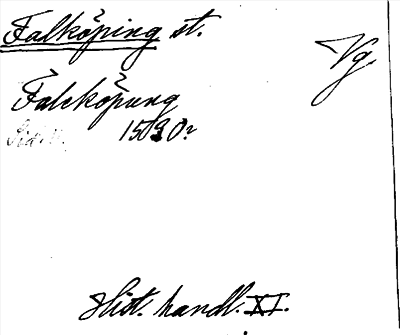 Falköping st.
Vg.
Falekôpung
1590?
Hist. handl. XI.